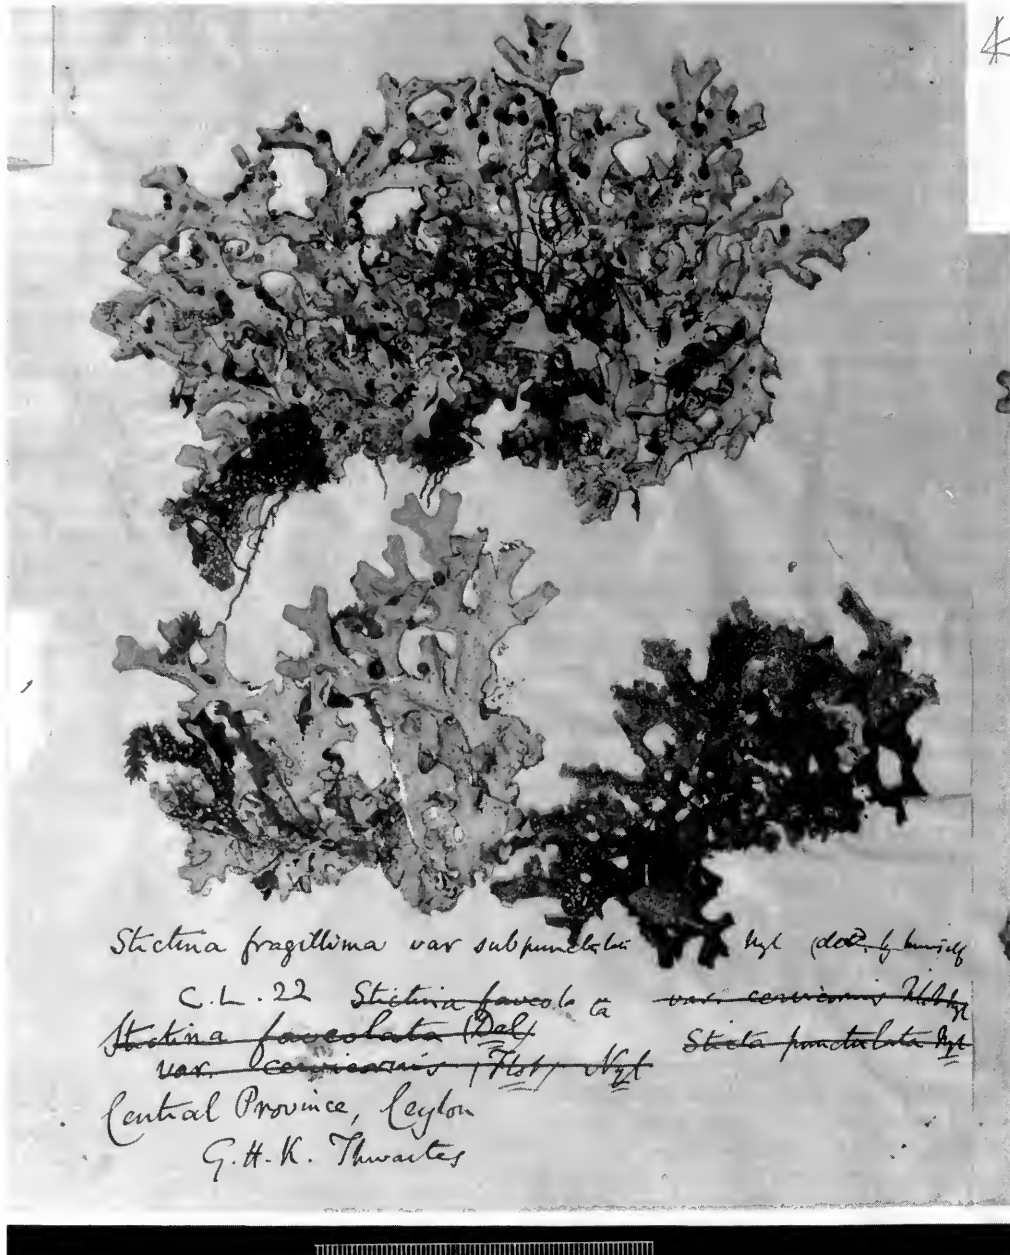 Stictina fragillima var subpunctulata Nyl (det. by himself
C.L.22 Stictina faveolata var. cervicornis Flot Nyl
Stictina faveolata (Del) Sticta punctulata Nyl
var. cervicornis (Flot) Nyl
Central Province, Ceylon
G.H.K. Thwaites